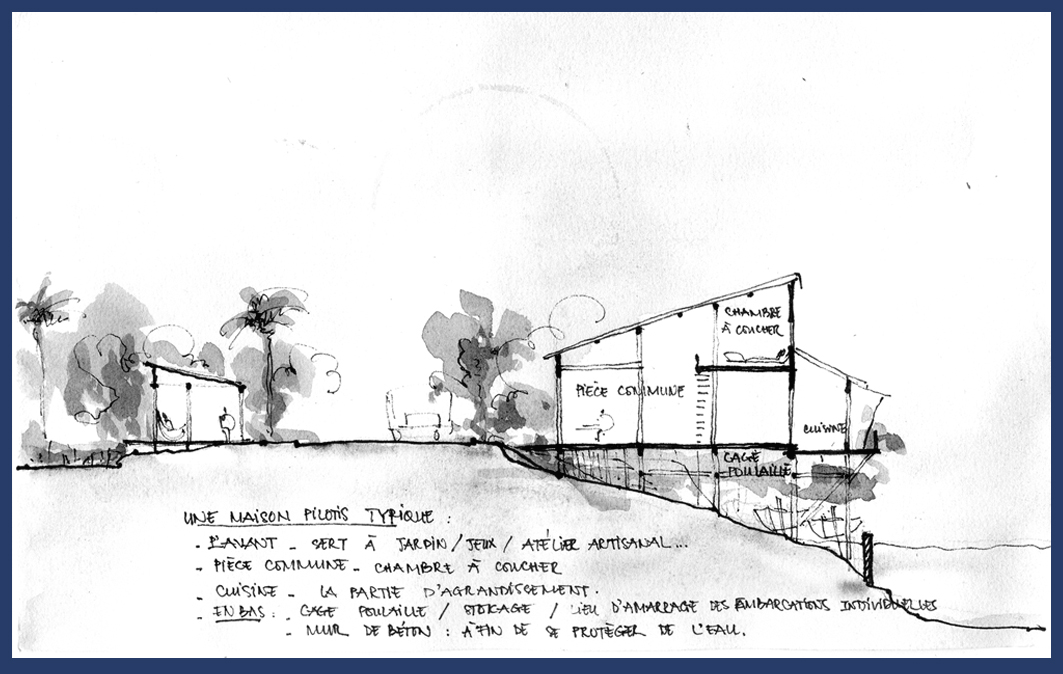 CHAMBRE
À COUCHER
PIÈCE COMMUNE
CUISINE
CAGE
POULAILLE
UNE MAISON PILOTIS TYPIQUE :
- L'AVANT - SERT À JARDIN / JEUX / ATÉLIER ARTISANAL...
- PIÈCE COMMUNE - CHAMBRE À COUCHER
- CUISINE - LA PARTIE D'AGRANDISSEMENT.
- EN BAS : - CAGE POULAILLE / STOKAGE / LIEU D'AMARRAGE DES EMBARCATIONS INDIVIDUELLES
- MUR DE BÉTON : AFIN DE SE PROTÈGER DE L'EAU.